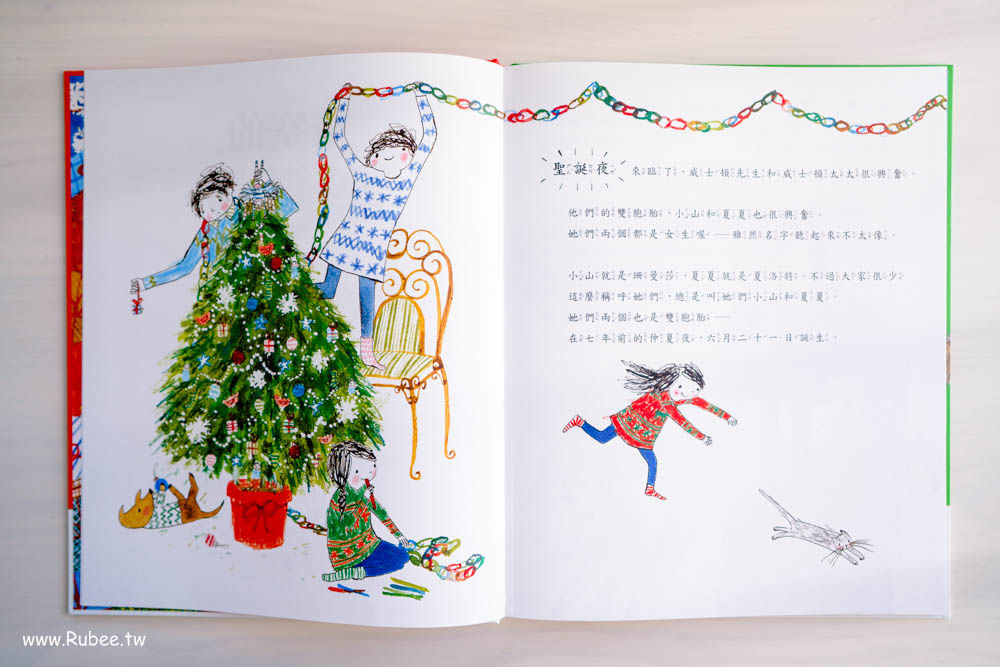 聖誕夜 來臨了，威士頓先生和威士頓太太很興奮。
他們的雙胞胎，小山和夏夏也很興奮。
她們兩個都是女生喔——雖然名字聽起來不太像。
小山就是珊曼莎，夏夏就是夏洛特。不過大家很少
這麼稱呼她們，總是叫她們小山和夏夏。
她們兩個也是雙胞胎——
在七年前的仲夏夜，六月二十一日誕生。
www.Rubee.tw